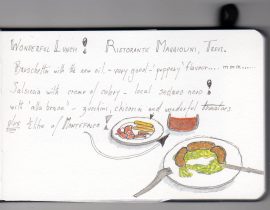 WONDERFUL LUNCH! RISTORANTE MAGGIOLINI, TREVI.
Bruschetta with the new oil - very good - 'peppery' flavour..... mmm.....
Salsiccia with creme of celery - local sedano nero!
with 'alla brace' - zucchini, chicoria and wonderful tomatoes.
plus ½ litre of MONTEFALCO!